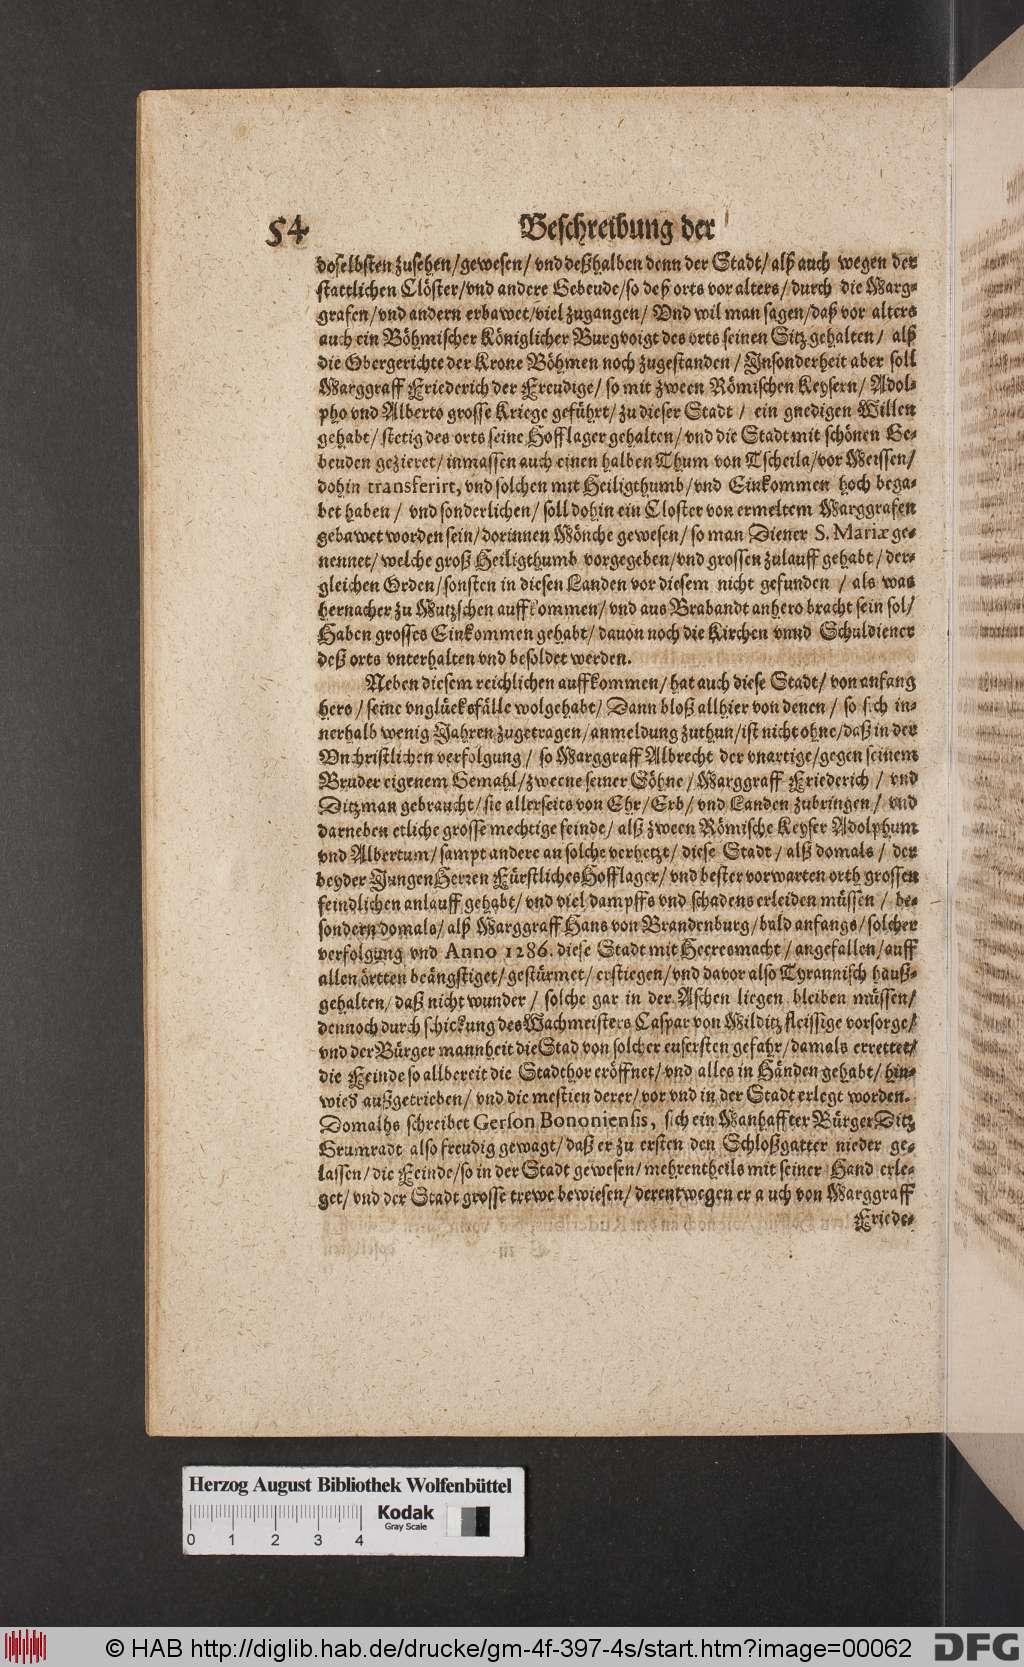 54
Beschreibung der
doselbsten zusehen/gewesen/ vnd deßhalben denn der Stadt/ alß auch wegen der
stattlichen Clöster/vnd andere Gebeude/so deß orts vor alters/ durch die Marg-
grafen/vnd andern erbawet/viel zugangen/ Vnd wil man sagen/daß vor alters
auch ein Böhmischer Königlicher Burgvoigt des orts seinen Sitz gehalten/ alß
die Obergerichte der Krone Böhmen noch zugestanden/ Insonderheit aber soll
Marggraff Friederich der Freudige/ so mit zween Römischen Keysern/ Adol-
pho vnd Alberto grosse Kriege geführt/ zu dieser Stadt / ein gnedigen Willen
gehabt/ stetig des orts seine Hofflager gehalten/ vnd die Stadt mit schönen Ge-
beuden gezieret/inmassen auch einen halben Thum von Tscheila/vor Meissen/
dohin transferirt, vnd solchen mit Heiligthumb/vnd Einkommen hoch bega-
bet haben / vnd sonderlichen/ soll dohin ein Closter von ermeltem Marggrafen
gebawet worden sein/ dorinnen Mönche gewesen/ so man Diener S. Mariæ ge-
nennet/ welche groß Heiligthumb vorgegeben/vnd grossen zulauff gehabt/ der-
gleichen Orden/sonsten in diesen Landen vor diesem nicht gefunden / als was
hernacher zu Mutzschen auffkommen/ vnd aus Brabandt anhero bracht sein sol/
Haben grosses Einkommen gehabt/ dauon noch die Kirchen vnnd Schuldiener
deß orts vnterhalten vnd besoldet werden.
Neben diesem reichlichen auffkommen/ hat auch diese Stadt/ von anfang
hero/ seine vnglücksfälle wolgehabt/ Dann bloß allhier von denen/ so sich in-
nerhalb wenig Jahren zugetragen/anmeldung zuthun/ist nicht ohne/daß in der
Vnchristlichen verfolgung/ so Marggraff Albrecht der vnartige/gegen seinem
Bruder eigenem Gemahl/zweene seiner Söhne/ Marggraff Friederich / vnd
Ditzman gebraucht/ sie allerseits von Ehr/ Erb/ vnd Landen zubringen/ vnd
darneben etliche grosse mechtige feinde/ alß zween Römische Keyser Adolphum
vnd Albertum/ sampt andere an solche verhetzt/ diese Stadt / alß domals / der
beyder Jungen Herren Fürstliches Hofflager/ vnd bester vorwarten orth grossen
feindlichen anlauff gehabt/ vnd viel dampffs vnd schadens erleiden müssen / be-
sondern domals/ alß Marggraff Hans von Brandenburg/ bald anfangs/ solcher
verfolgung vnd Anno 1286. diese Stadt mit Heeresmacht / angefallen/auff
allen örtten beängstiget/ gestürmet/ erstiegen/ vnd davor also Tyrannisch hauß-
gehalten/ daß nicht wunder / solche gar in der Aschen liegen bleiben müssen/
dennoch durch schickung des Wachmeisters Caspar von Milditz fleissige vorsorge/
vnd der Bürger mannheit die Stad von solcher eusersten gefahr/ damals errettet/
die Feinde so allbereit die Stadthor eröffnet/ vnd alles in Händen gehabt/ hin-
wied außgetrieben/ vnd die meisten derer/ vor vnd in der Stadt erlegt worden.
Domalhs schreibet Gerson Bononiensis, sich ein Manhaffter Bürger Ditz
Grumradt also freudig gewagt/ daß er zu ersten den Schloßgatter nieder ge-
lassen/ die Feinde/so in der Stadt gewesen/ mehrentheils mit seiner Hand erle-
get/ vnd der Stadt grosse trewe bewiesen/ derentwegen er auch von Marggraff
Friede-
Herzog August Bibliothek Wolfenbüttel
Kodak
Gray Scale
0 1 2 3 4
© HAB http://diglib.hab.de/drucke/gm-4f-397-4s/start.htm?image=00062
DFG